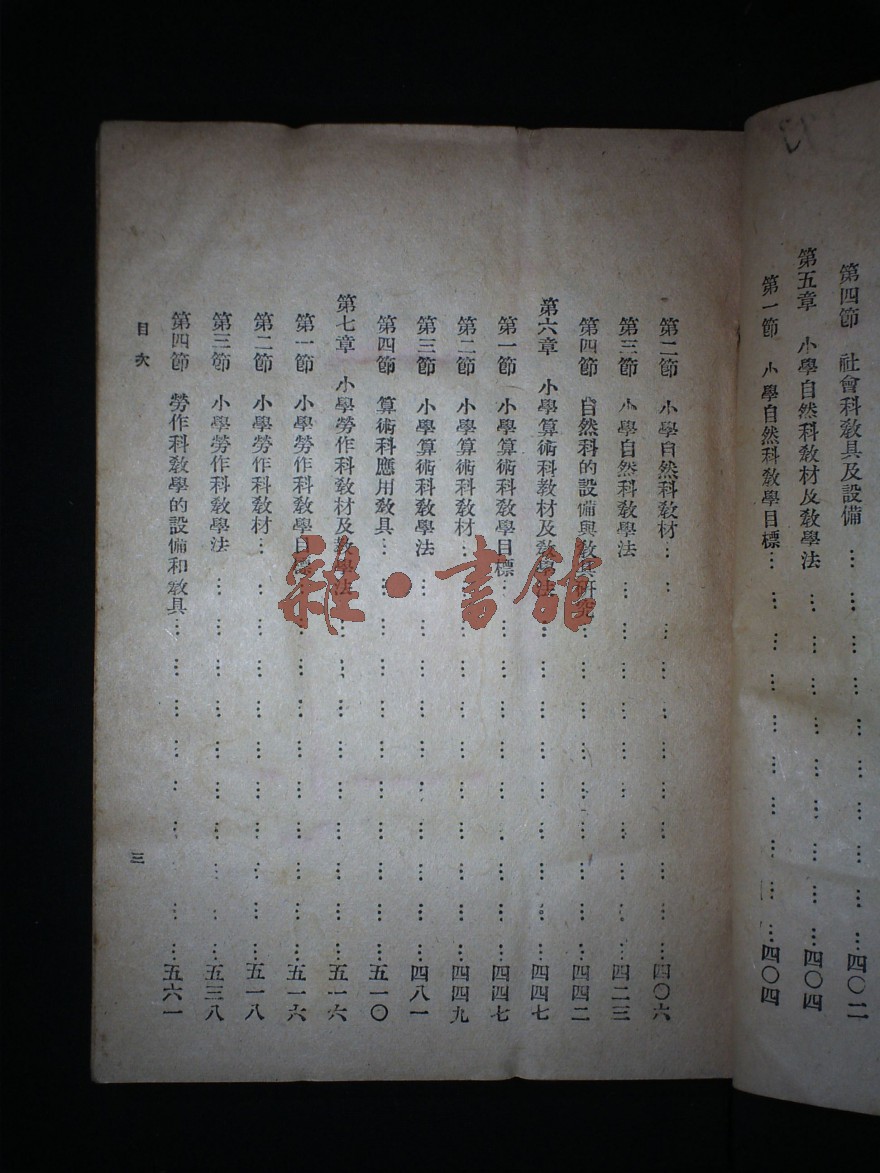 第四節 社會科敎具及設備 … … … … … … … … … …四〇二
第五章 小學自然科敎材及敎學法 … … … … … … … … …四〇四
第一節 小學自然科敎學目標… … … … … … … … … …四〇四
第二節 小學自然科敎材… … … … … … … … … …四〇六
第三節 小學自然科敎學法 … … … … … … … … …四二三
第四節 自然科的設備與敎具硏究… … … … … … … … …四四二
第六章 小學算術科敎材及敎學法… … … … … … … … …四四七
第一節 小學算術科敎學目標… … … … … … … … … …四四七
第二節 小學算術科敎材… … … … … … … … … … …四四九
第三節 小學算術科敎學法 … … … … … … … … …四八一
第四節 算術科應用敎具… … … … … … … … … … …五一〇
第七章 小學勞作科敎材及敎學法… … … … … … … … …五一六
第一節 小學勞作科敎學目標… … … … … … … … … …五一六
第二節 小學勞作科敎材… … … … … … … … … … …五一八
第三節 小學勞作科敎學法 … … … … … … … … …五三八
第四節 勞作科敎學的設備和敎具… … … … … … … … …五六一
目次
三
雜·書館